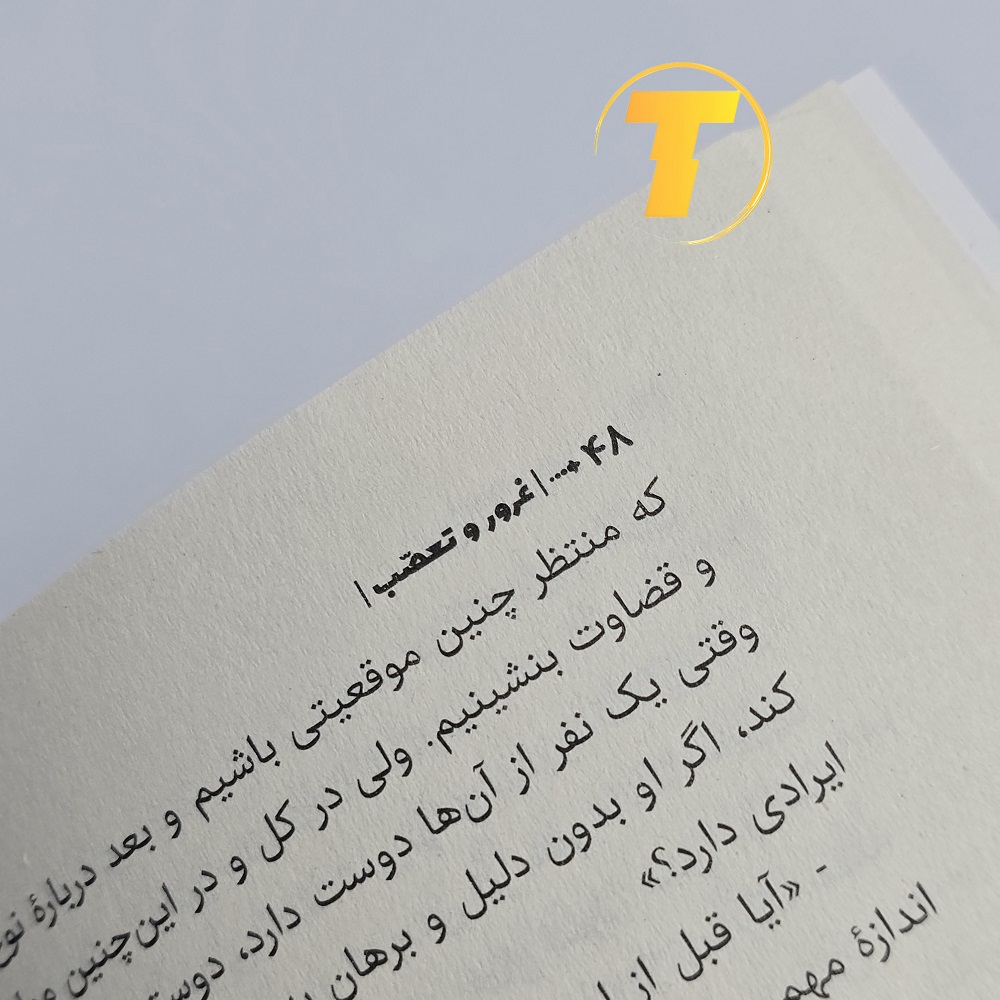 T
۴۸ ... | غرور و تعصّب |
که منتظر چنین موقعیتی باشیم و بعد دربارهٔ
و قضاوت بنشینیم. ولی در کل و در این‌چنین
وقتی یک نفر از آن‌ها دوست دارد،
کند، اگر او بدون دلیل و برهان
ایرادی دارد؟»
- «آیا قبل از
اندازهٔ